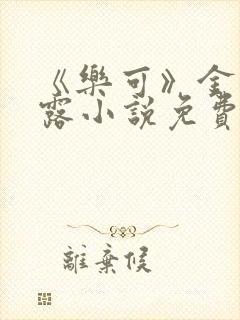 《樂可》金
露小說免費
離棄候